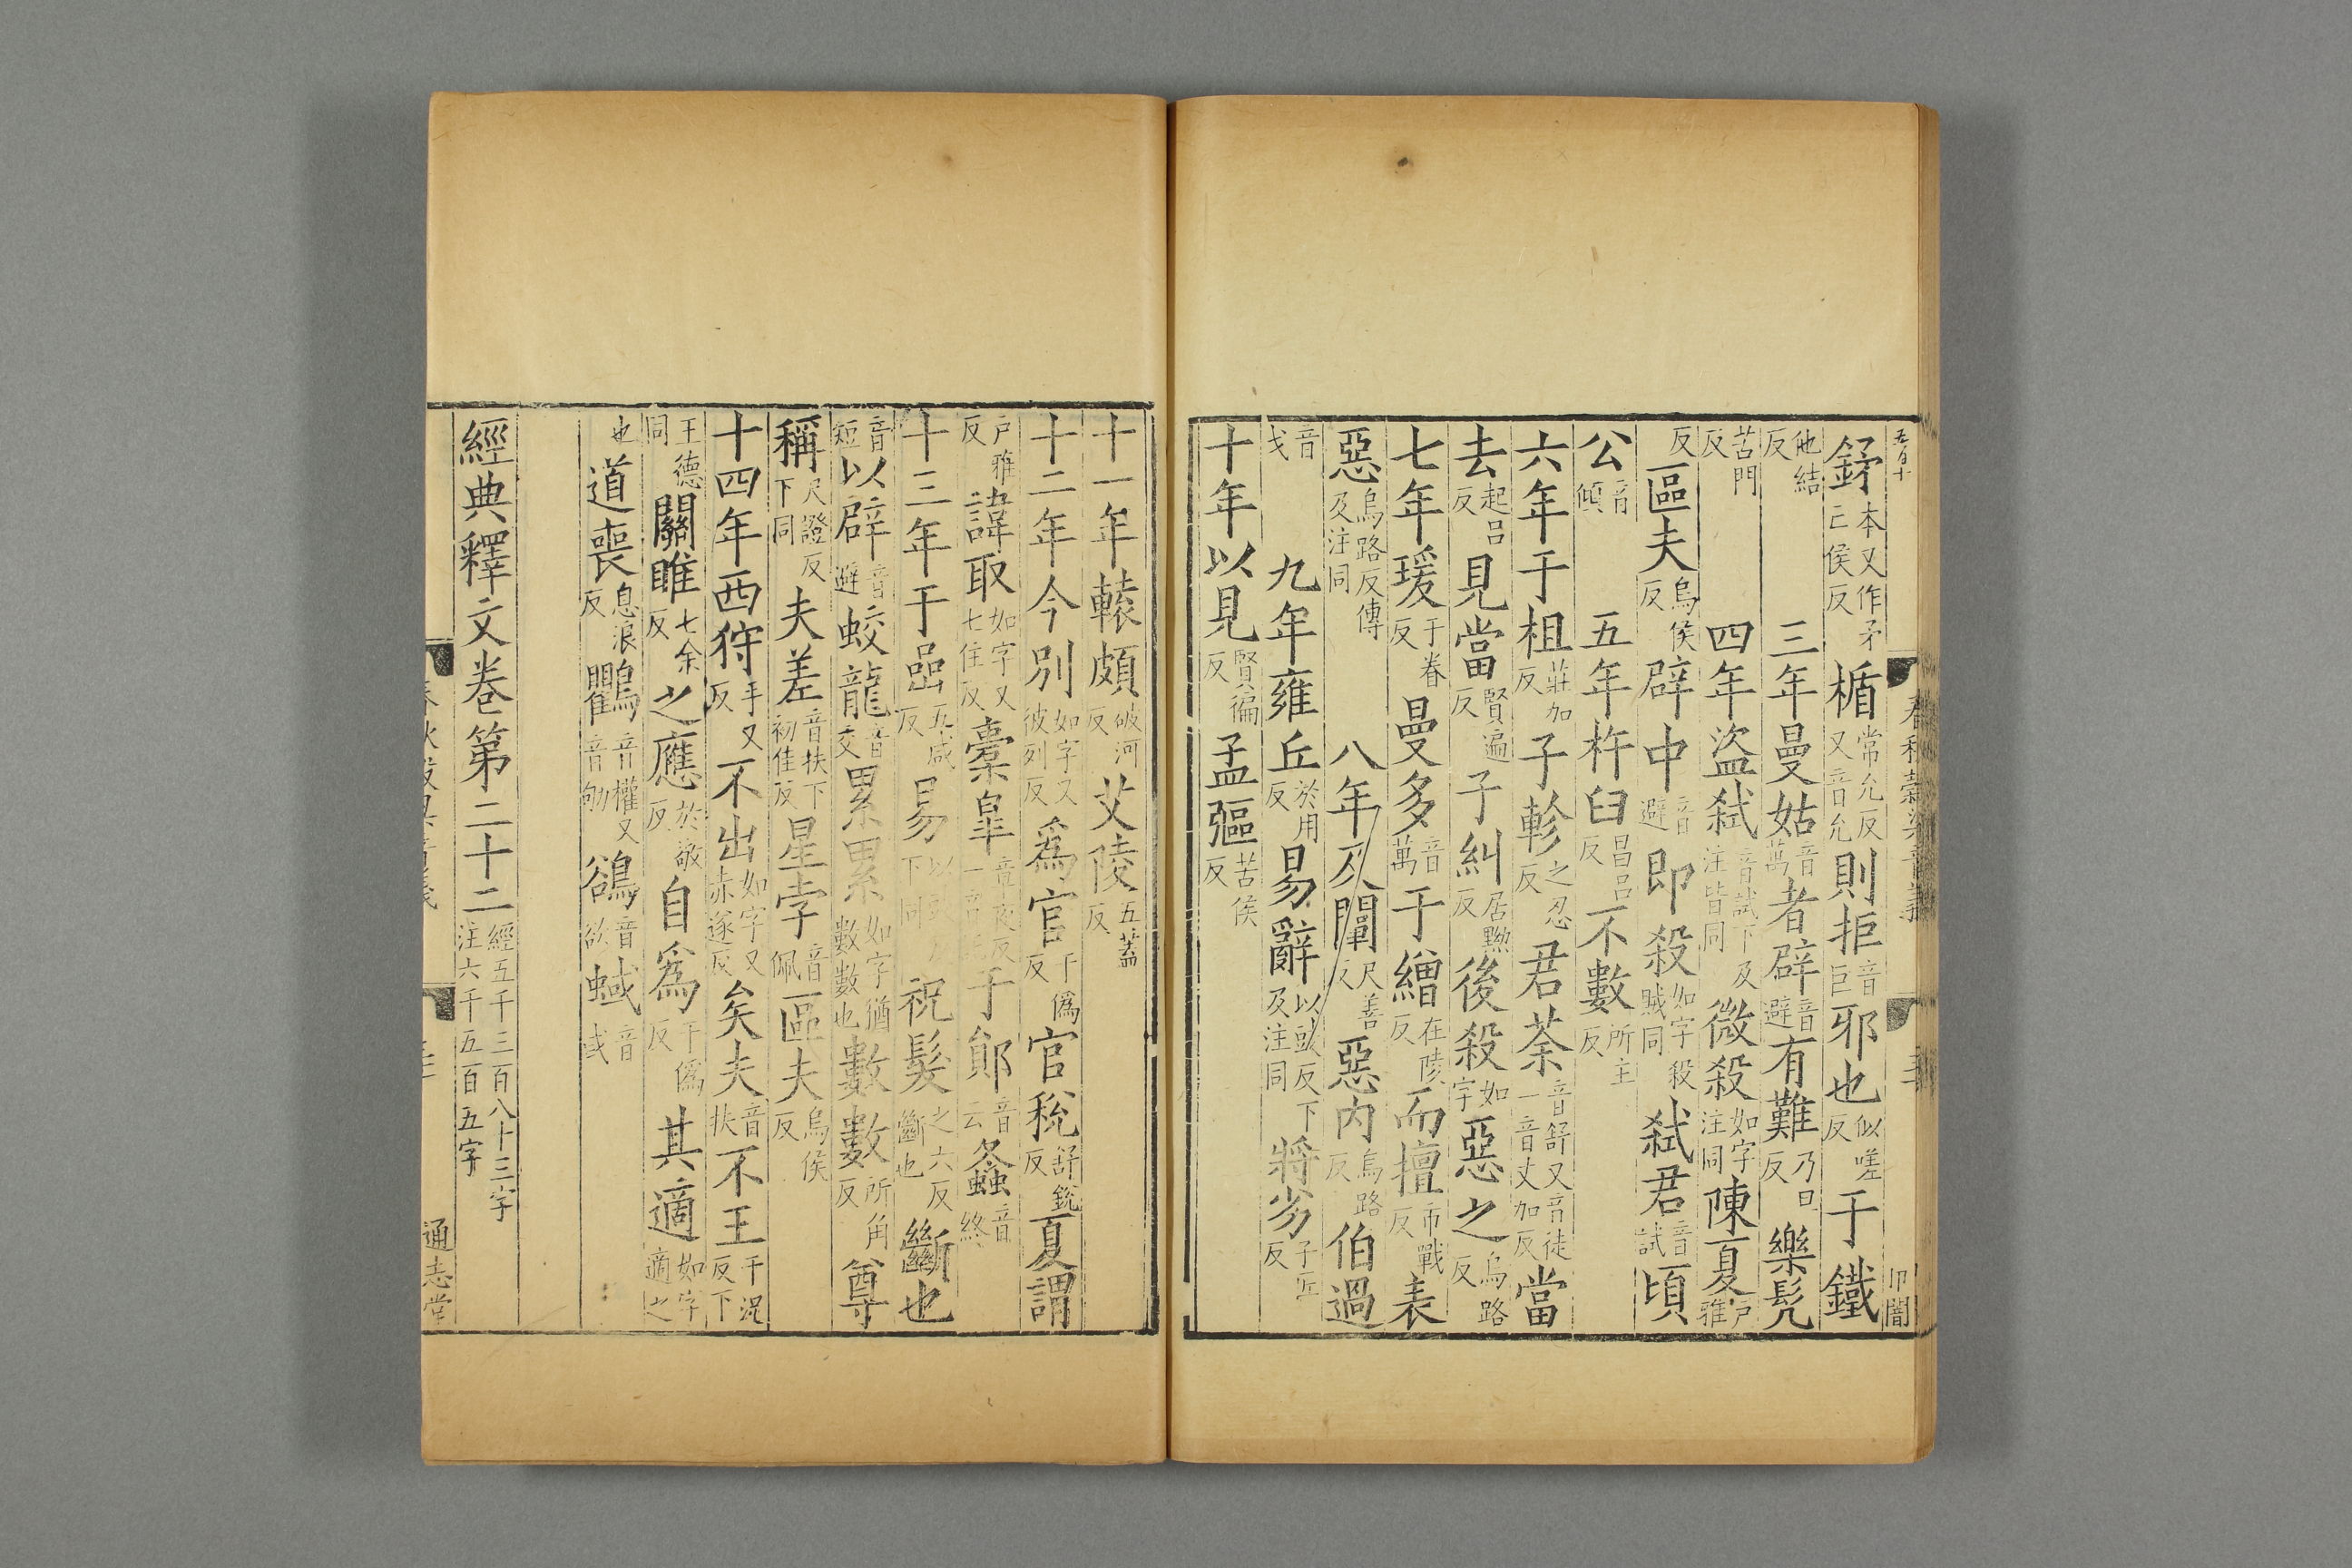 鉹本又作矛亡侯反楯常允反又音允則拒音巨邪也似嗟反于鐵
他結反 三年曼姑音萬者辟音避有難乃旦反樂髡
苦門反 四年盜弑音試下及注皆同微殺如字注同陳夏戶雅
反區夫烏侯反辟中音避即殺如字殺賊同弑君音試頃
公音傾 五年杵臼昌呂反不數所主反
六年于柤莊加反子軫之忍反君荼音舒又音徒一音丈加反當
去起呂反見當賢遍反子糾居黝反後殺如字惡之烏路反
七年瑗于眷反曼多音萬于繒在陵反而擅市戰反表
惡烏路反傳及注同 八年及闡尺善反惡內烏路反伯過
音戈 九年雍丘於用反易辭以豉反下及注同將劣子匠反
十年以見賢徧反孟彄苦侯反
十一年轅頗破河反艾陵五蓋反
十二年今別如字又彼列反爲官于僞反官稅舒銳反夏謂
戶雅反諱取如字又七住反橐皐章夜反一音託于鄖音云螽音終
十三年于嵒五咸反易祝髮之六反斷也斷也
音短以辟音避蛟龍音交累累如字猶數數也數數所角反尊
稱尺證反下同夫差音扶下初佳反星孛音佩區夫烏侯反
十四年西狩手又反不出如字又赤遂反矣夫音扶不王于況反下
王德同關雎七余反之應於敬反自爲于僞反其適如字適之
也道喪息浪反鸜音權又音劬鵒音欲蜮音或
經典釋文卷第二十二經五千三百八十三字注六千五百五字
通志堂